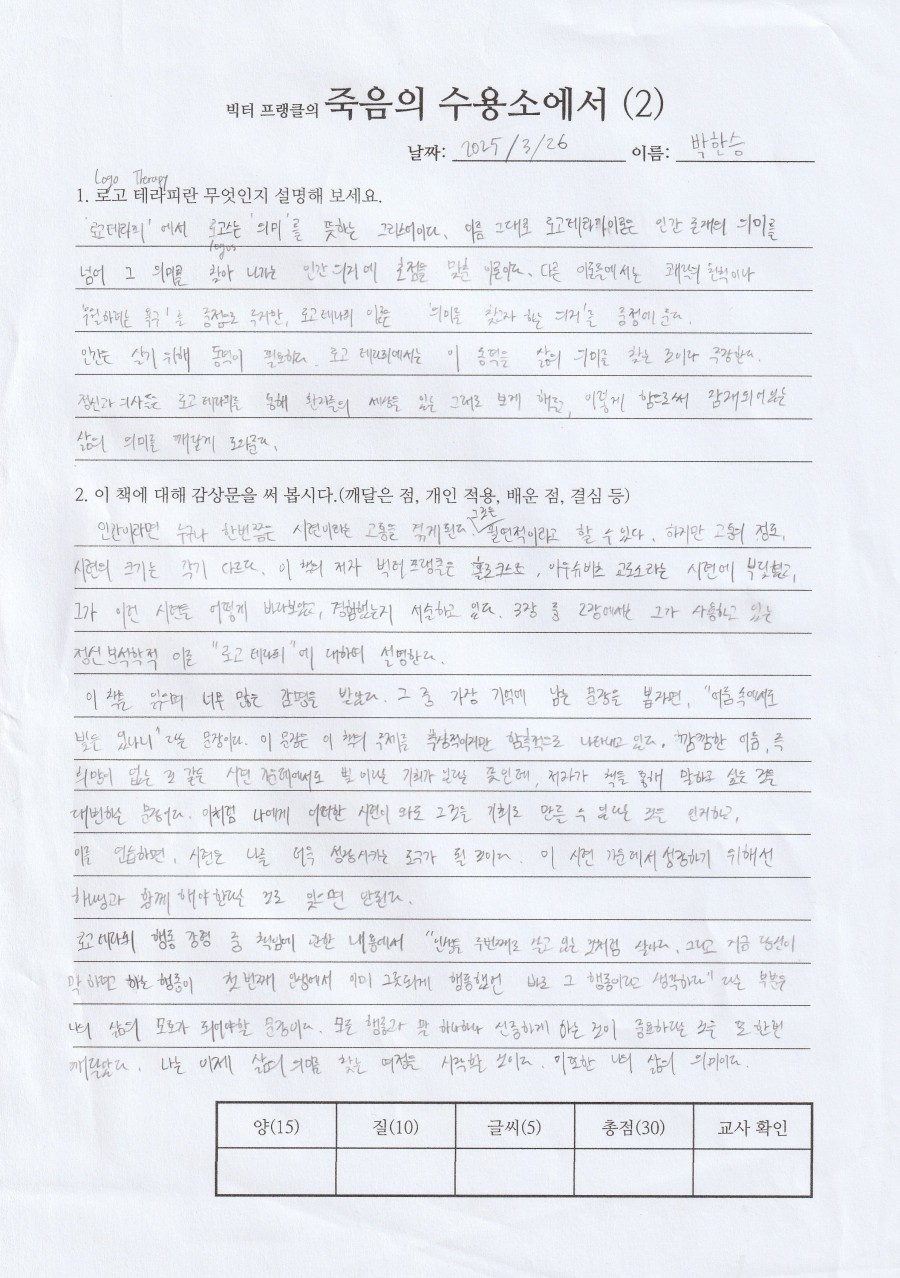 빅터 프랭클의 죽음의 수용소에서 (2)
날짜: 2025/3/26 이름: 박한승
Logo Therapy
1. 로고 테라피란 무엇인지 설명해 보세요.
'로고테라피'에서 로고스는 '의미'를 뜻하는 그리스어이다. 이름 그대로 로고테라피이론은 인간 존재의 의미를
logos
넘어 그 의미를 찾아 나가는 인간 의지에 초점을 맞춘 이론이다. 다른 이론들에서는 쾌락의 원칙이나
욕구'를 중점으로 두지만, 로고 테라피 이론은 '의미를 찾고자 하는 의지'를 중점에 둔다.
인간은 살기 위해 동력이 필요하다. 로고 테라피에서는 이 동력을 삶의 의미를 찾는 것이라 주장한다.
정신과 의사들은 로고 테라피를 통해 환자들의 세상을 있는 그대로 보게 해주고, 이렇게 함으로써 잠재되어있는
삶의 의미를 깨닫게 도와준다.
2. 이 책에 대해 감상문을 써 봅시다.(깨달은 점, 개인 적용, 배운 점, 결심 등)
그것은
인간이라면 누구나 한번쯤은 시련이라는 고통을 겪게된다. 필연적이라고 할 수 있다. 하지만 고통의 정도,
시련의 크기는 각기 다르다. 이 책의 저자 빅터 프랭클은 홀로코스트, 아우슈비츠 라는 시련에 부딪혔고,
그가 이런 시련을 어떻게 바라보았고, 경험했는지 서술하고 있다. 3장 중 2장에서는 그가 사용하고 있는
정신분석학적 이론 "로고 테라피"에 대하여 설명한다.
이 책을 읽으며 너무 많은 감명을 받았다. 그 중 가장 기억에 남는 문장을 뽑자면, "어둠 속에서도
빛은 있나니"라는 문장이다. 이 문장은 이 책의 주제를 추상적이지만 함축적으로 나타내고 있다. 깜깜한 어둠, 즉
희망이 없는 것 같은 시련 가운데에서도 빛 이라는 기회가 있다는 뜻인데, 저자가 책을 통해 말하고 싶은 것을
대변하는 문장이다. 이처럼 나에게 어떠한 시련이 와도 그것을 기회로 만들 수 있다는 것을 인지하고,
이를 연습하면, 시련은 나를 더욱 성장시키는 도구가 될 것이다. 이 시련 가운데서 성장하기 위해선
하나님과 함께 해야한다는 것도 잊으면 안된다.
로고테라피 행동 강령 중 책임에 관한 내용에서 "인생을 두번째로 살고 있는 것처럼 살아라. 그리고 지금 당신이
막 하려고 하는 행동이 첫 번째 인생에서 이미 그릇되게 행동했던 바로 그 행동이라고 생각하라"라는 부분은
나의 삶의 모토가 되어야할 문장이다. 모든 행동과 말 하나하나 신중하게 하는 것이 중요하다는 것을 또 한번
깨달았다. 나는 이제 삶의 의미를 찾는 여정을 시작할 것이다. 이 또한 나의 삶의 의미이다.
양(15) 질(10) 글씨(5) 총점(30) 교사 확인